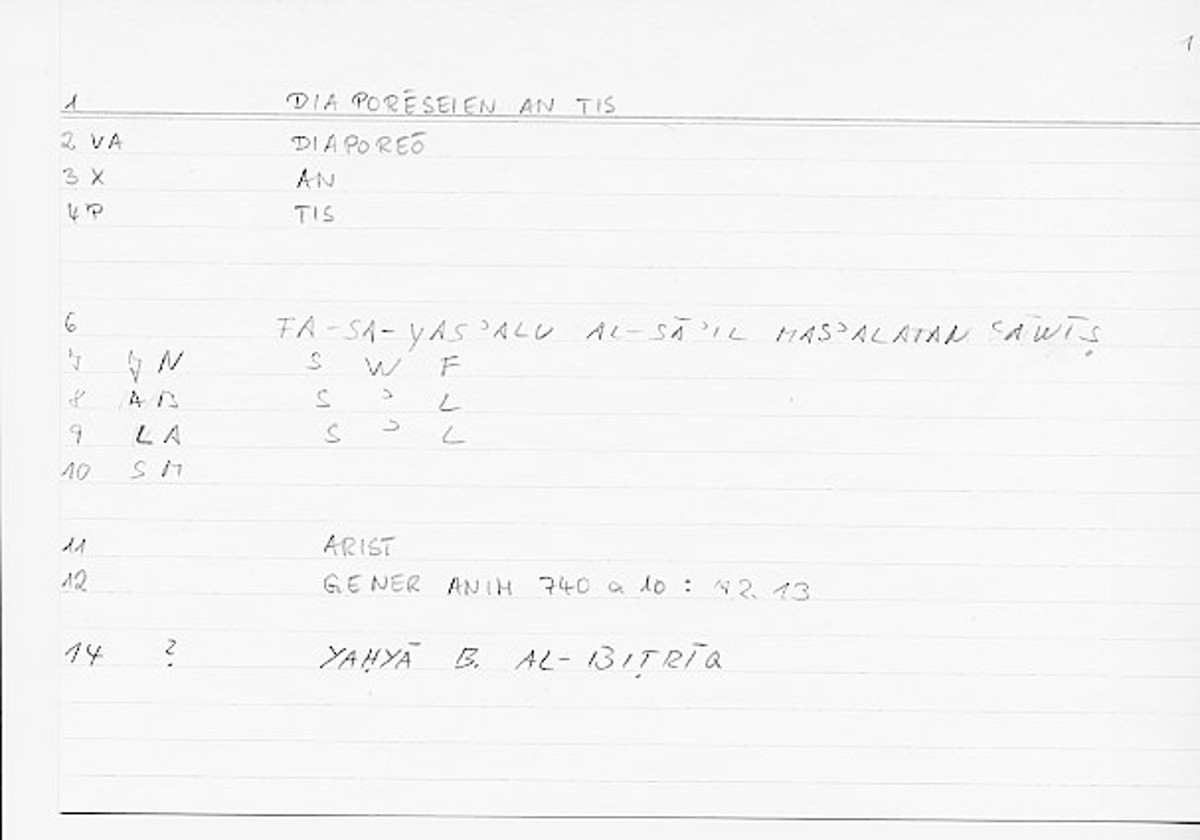 1
1 DIAPORĒSEIEN AN TIS
2 VA DIAPOREŌ
3 X AN
4 P TIS
6 FA-SA-YASʾALU AL-SĀʾIL MASʾALATAN ʿAWĪṢ
7 YN S W F
8 AB S ʾ L
9 LA S ʾ L
10 SM
11 ARIST
12 GENER ANIM 740 a 10 : 42.13
14 ? YAḤYĀ B. AL-BIṬRĪQ